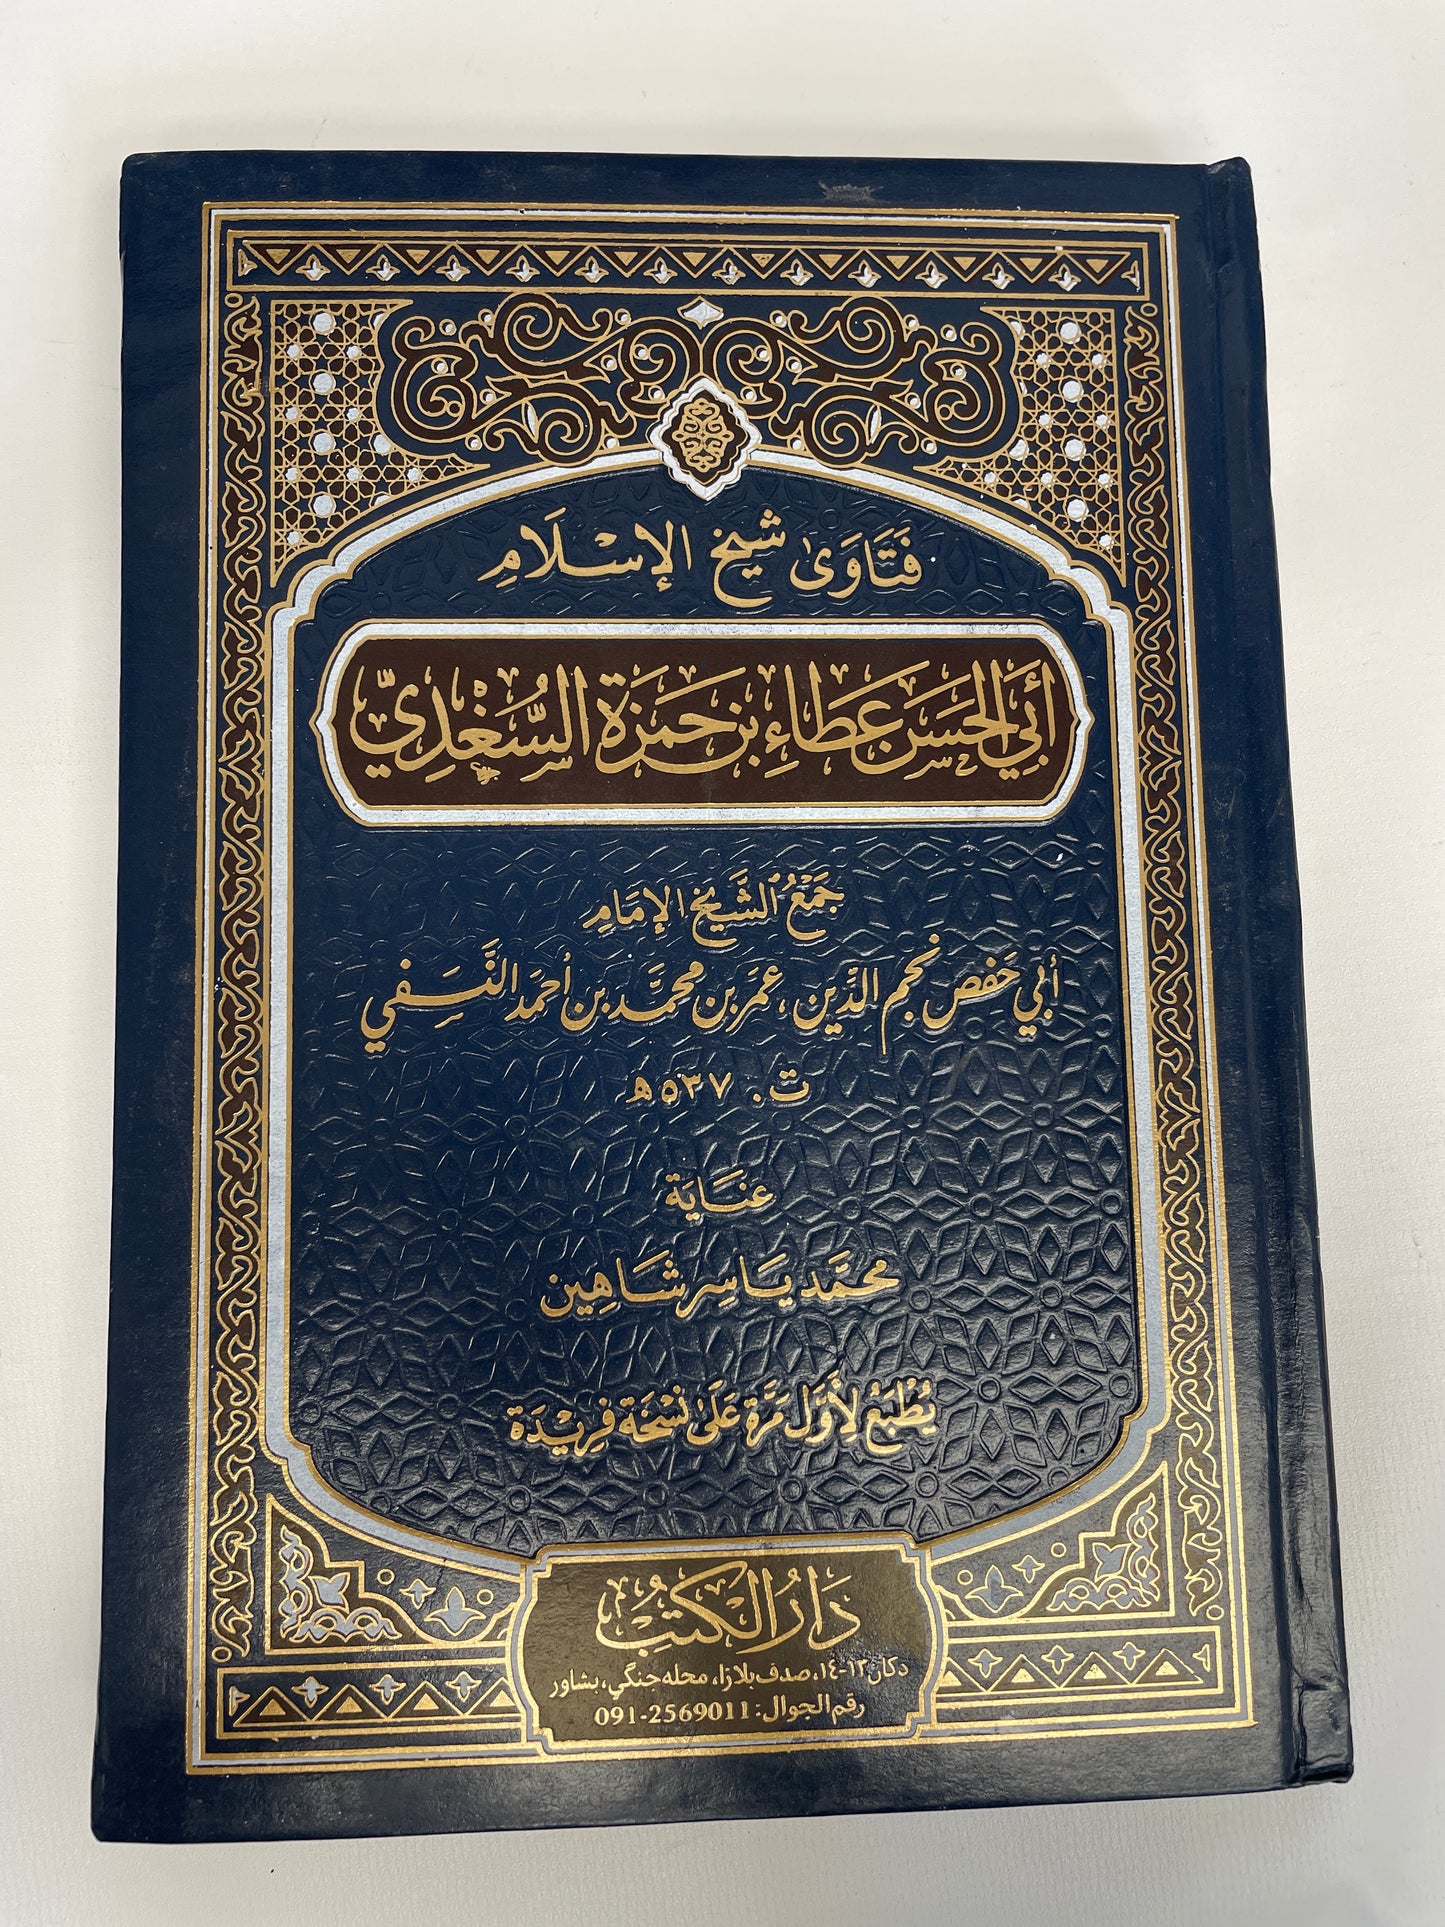 فَتَاوَىٰ شيخ الإسْلَامِ
أَبي الحَسَن عَطَاءِ بن حَمزَة السُّغْدِيّ
جَمْعُ الشَّيخ الإمَامِ
أبي حَفص نجم الدِّين، عمَر بن محمَّد بن أحمَد النَّسَفي
ت. ٥٣٧ هـ
عنَايَة
محمَّد يَاسِر شَاهِين
يُطْبَعُ لِأَوَّل مَرَّة عَلَى نُسْخَة فِريْدَة
دَارُ الكتُبِ
دكان ١٣-١٤، صدف بلازا، محله جنگي، بشاور
رقم الجوال: 2569011-091